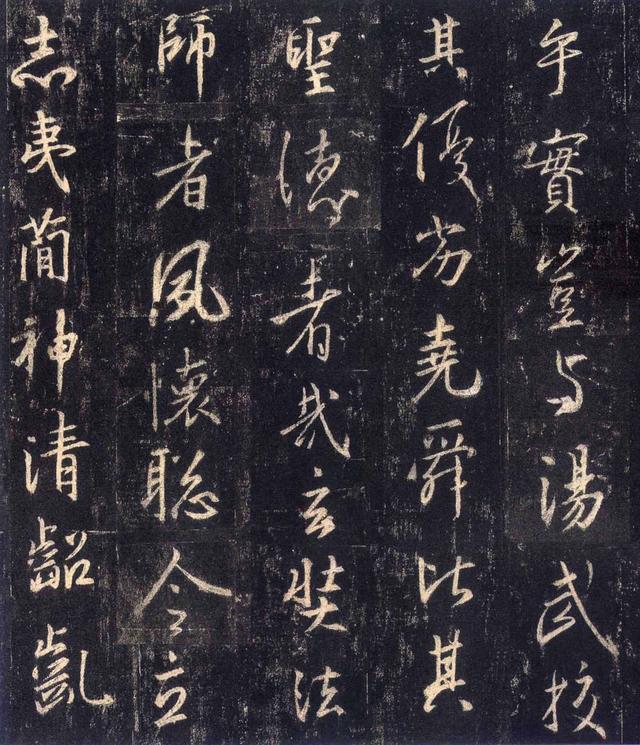 乎實豈與湯武校
其優劣堯舜比其
聖德者哉玄奘法
師者夙懷聰令立
志夷簡神清齠齓